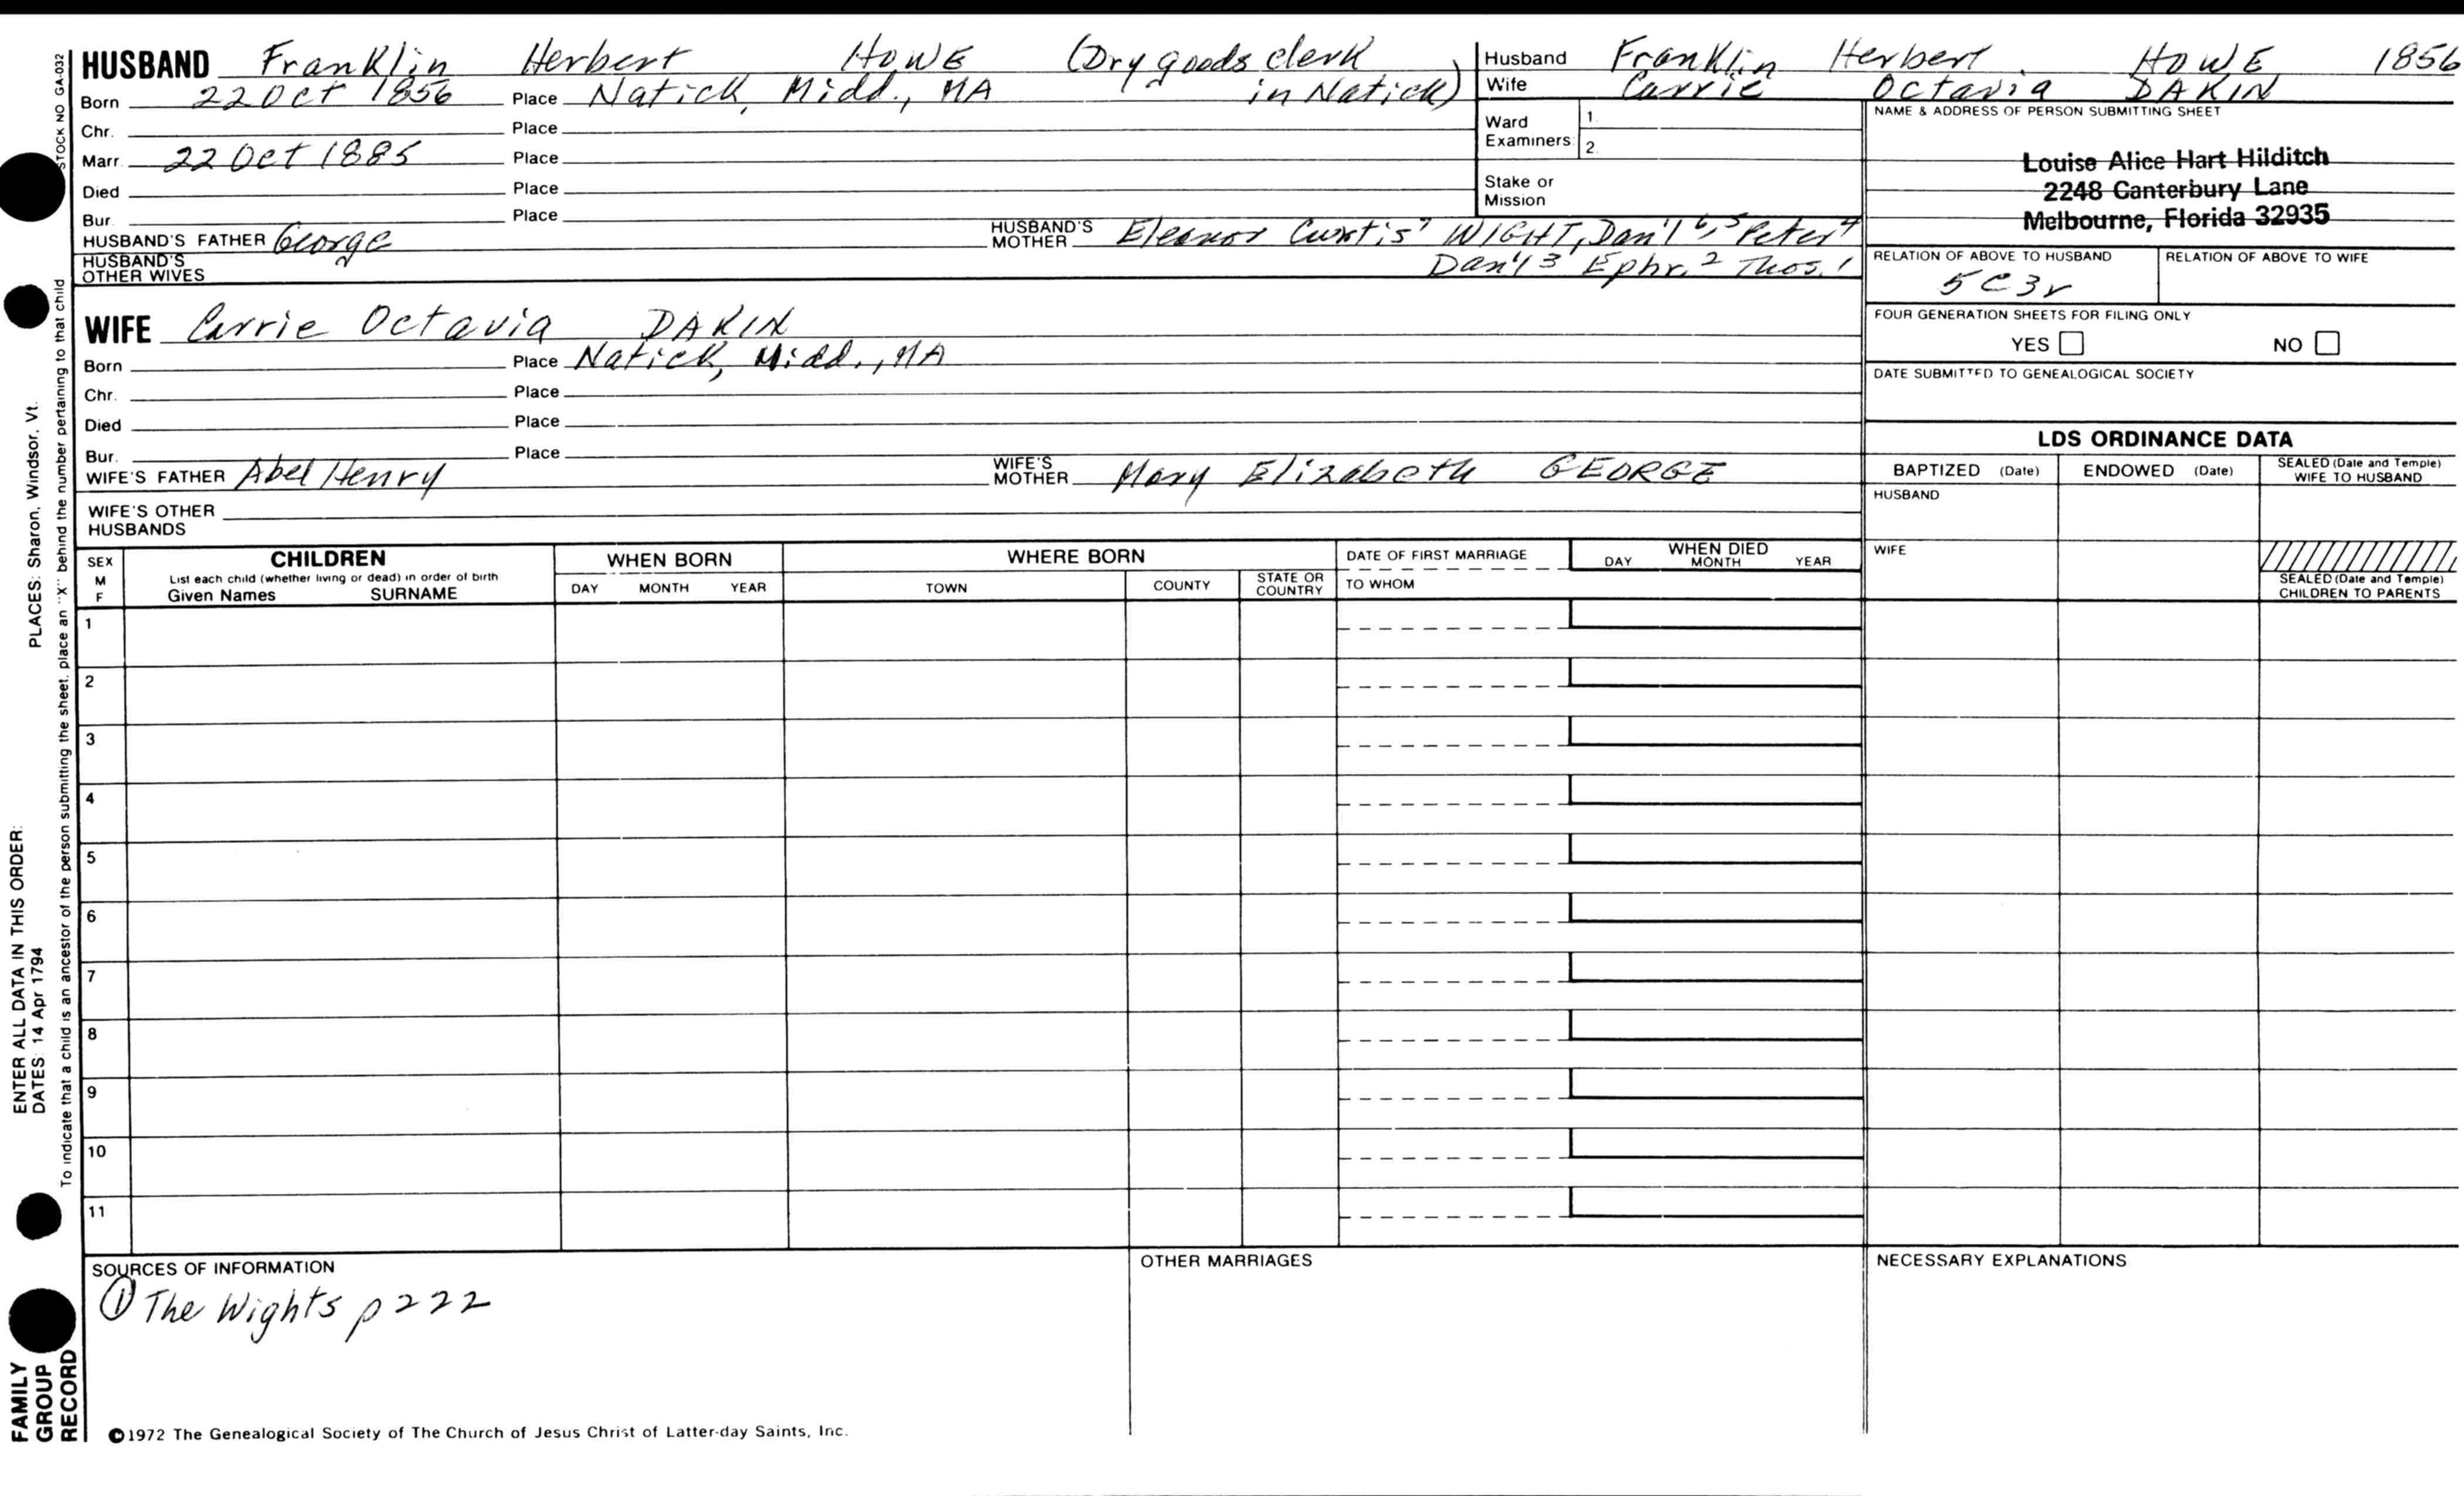 HUSBAND Franklin Herbert HOWE (Dry goods clerk
Born 22 Oct 1856 Place Natick, Midd., MA in Natick)
Chr. Place
Marr. 22 Oct 1885 Place
Died Place
Bur. Place
HUSBAND'S FATHER George HUSBAND'S MOTHER Eleanor Curtis⁷ WIGHT, Dan'l⁶,⁵ Peter⁴
HUSBAND'S OTHER WIVES Dan'l³ Ephr.² Thos.¹
WIFE Carrie Octavia DAKIN
Born Place Natick, Midd., MA
Chr. Place
Died Place
Bur. Place
WIFE'S FATHER Abel Henry WIFE'S MOTHER Mary Elizabeth GEORGE
WIFE'S OTHER
HUSBANDS
Husband Franklin Herbert HOWE 1856
Wife Carrie Octavia DAKIN
Ward Examiners: 1.
2.
Stake or
Mission
NAME & ADDRESS OF PERSON SUBMITTING SHEET
Louise Alice Hart Hilditch
2248 Canterbury Lane
Melbourne, Florida 32935
RELATION OF ABOVE TO HUSBAND RELATION OF ABOVE TO WIFE
5C3r
FOUR GENERATION SHEETS FOR FILING ONLY
YES NO
DATE SUBMITTED TO GENEALOGICAL SOCIETY
LDS ORDINANCE DATA
BAPTIZED (Date) ENDOWED (Date) SEALED (Date and Temple) WIFE TO HUSBAND
HUSBAND
WIFE
SEALED (Date and Temple)
CHILDREN TO PARENTS
SEX M F CHILDREN WHEN BORN WHERE BORN DATE OF FIRST MARRIAGE WHEN DIED
List each child (whether living or dead) in order of birth
Given Names SURNAME DAY MONTH YEAR TOWN COUNTY STATE OR COUNTRY TO WHOM DAY MONTH YEAR
1
2
3
4
5
6
7
8
9
10
11
SOURCES OF INFORMATION OTHER MARRIAGES NECESSARY EXPLANATIONS
① The Wights p 222
©1972 The Genealogical Society of The Church of Jesus Christ of Latter-day Saints, Inc.
STOCK NO GA-032
ENTER ALL DATA IN THIS ORDER:
DATES: 14 Apr 1794 PLACES: Sharon, Windsor, Vt.
To indicate that a child is an ancestor of the person submitting the sheet, place an "X" behind the number pertaining to that child
FAMILY
GROUP
RECORD